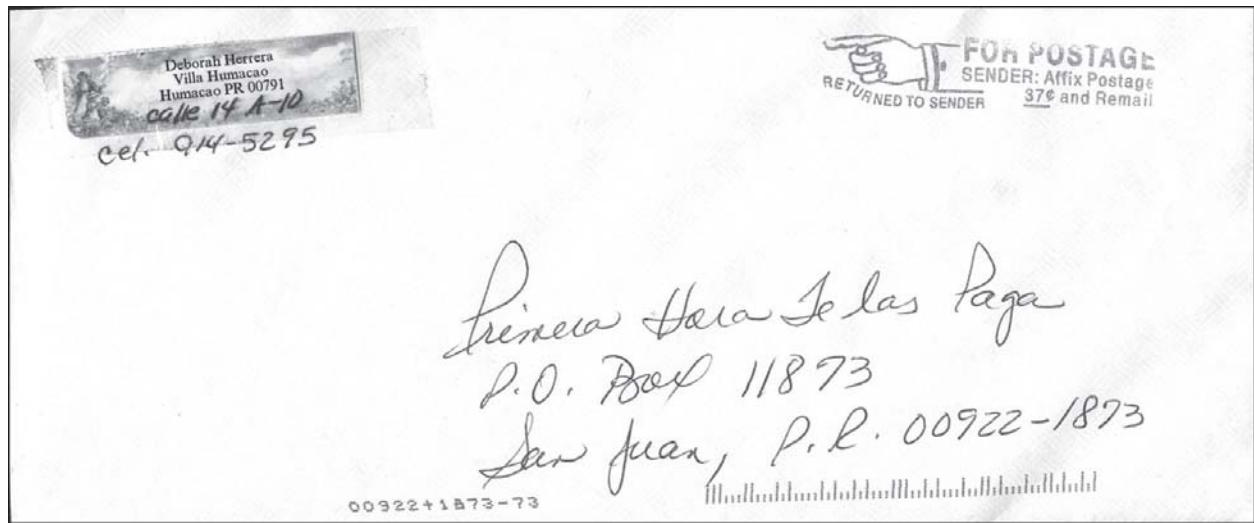 Deborah Herrera
Villa Humacao
Humacao PR 00791
calle 14 A-10
cel. 914-5295
FOR POSTAGE
SENDER: Affix Postage
37¢ and Remail
RETURNED TO SENDER
Primera Hora Te las Paga
P.O. Box 11873
San Juan, P.R. 00922-1873
00922+1873-73